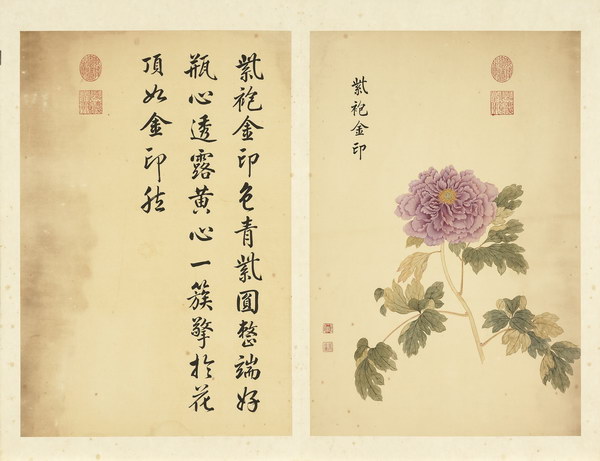 紫袍金印
紫袍金印色青紫圓整端好
瓶心透露黃心一簇擎於花
頂如金印然